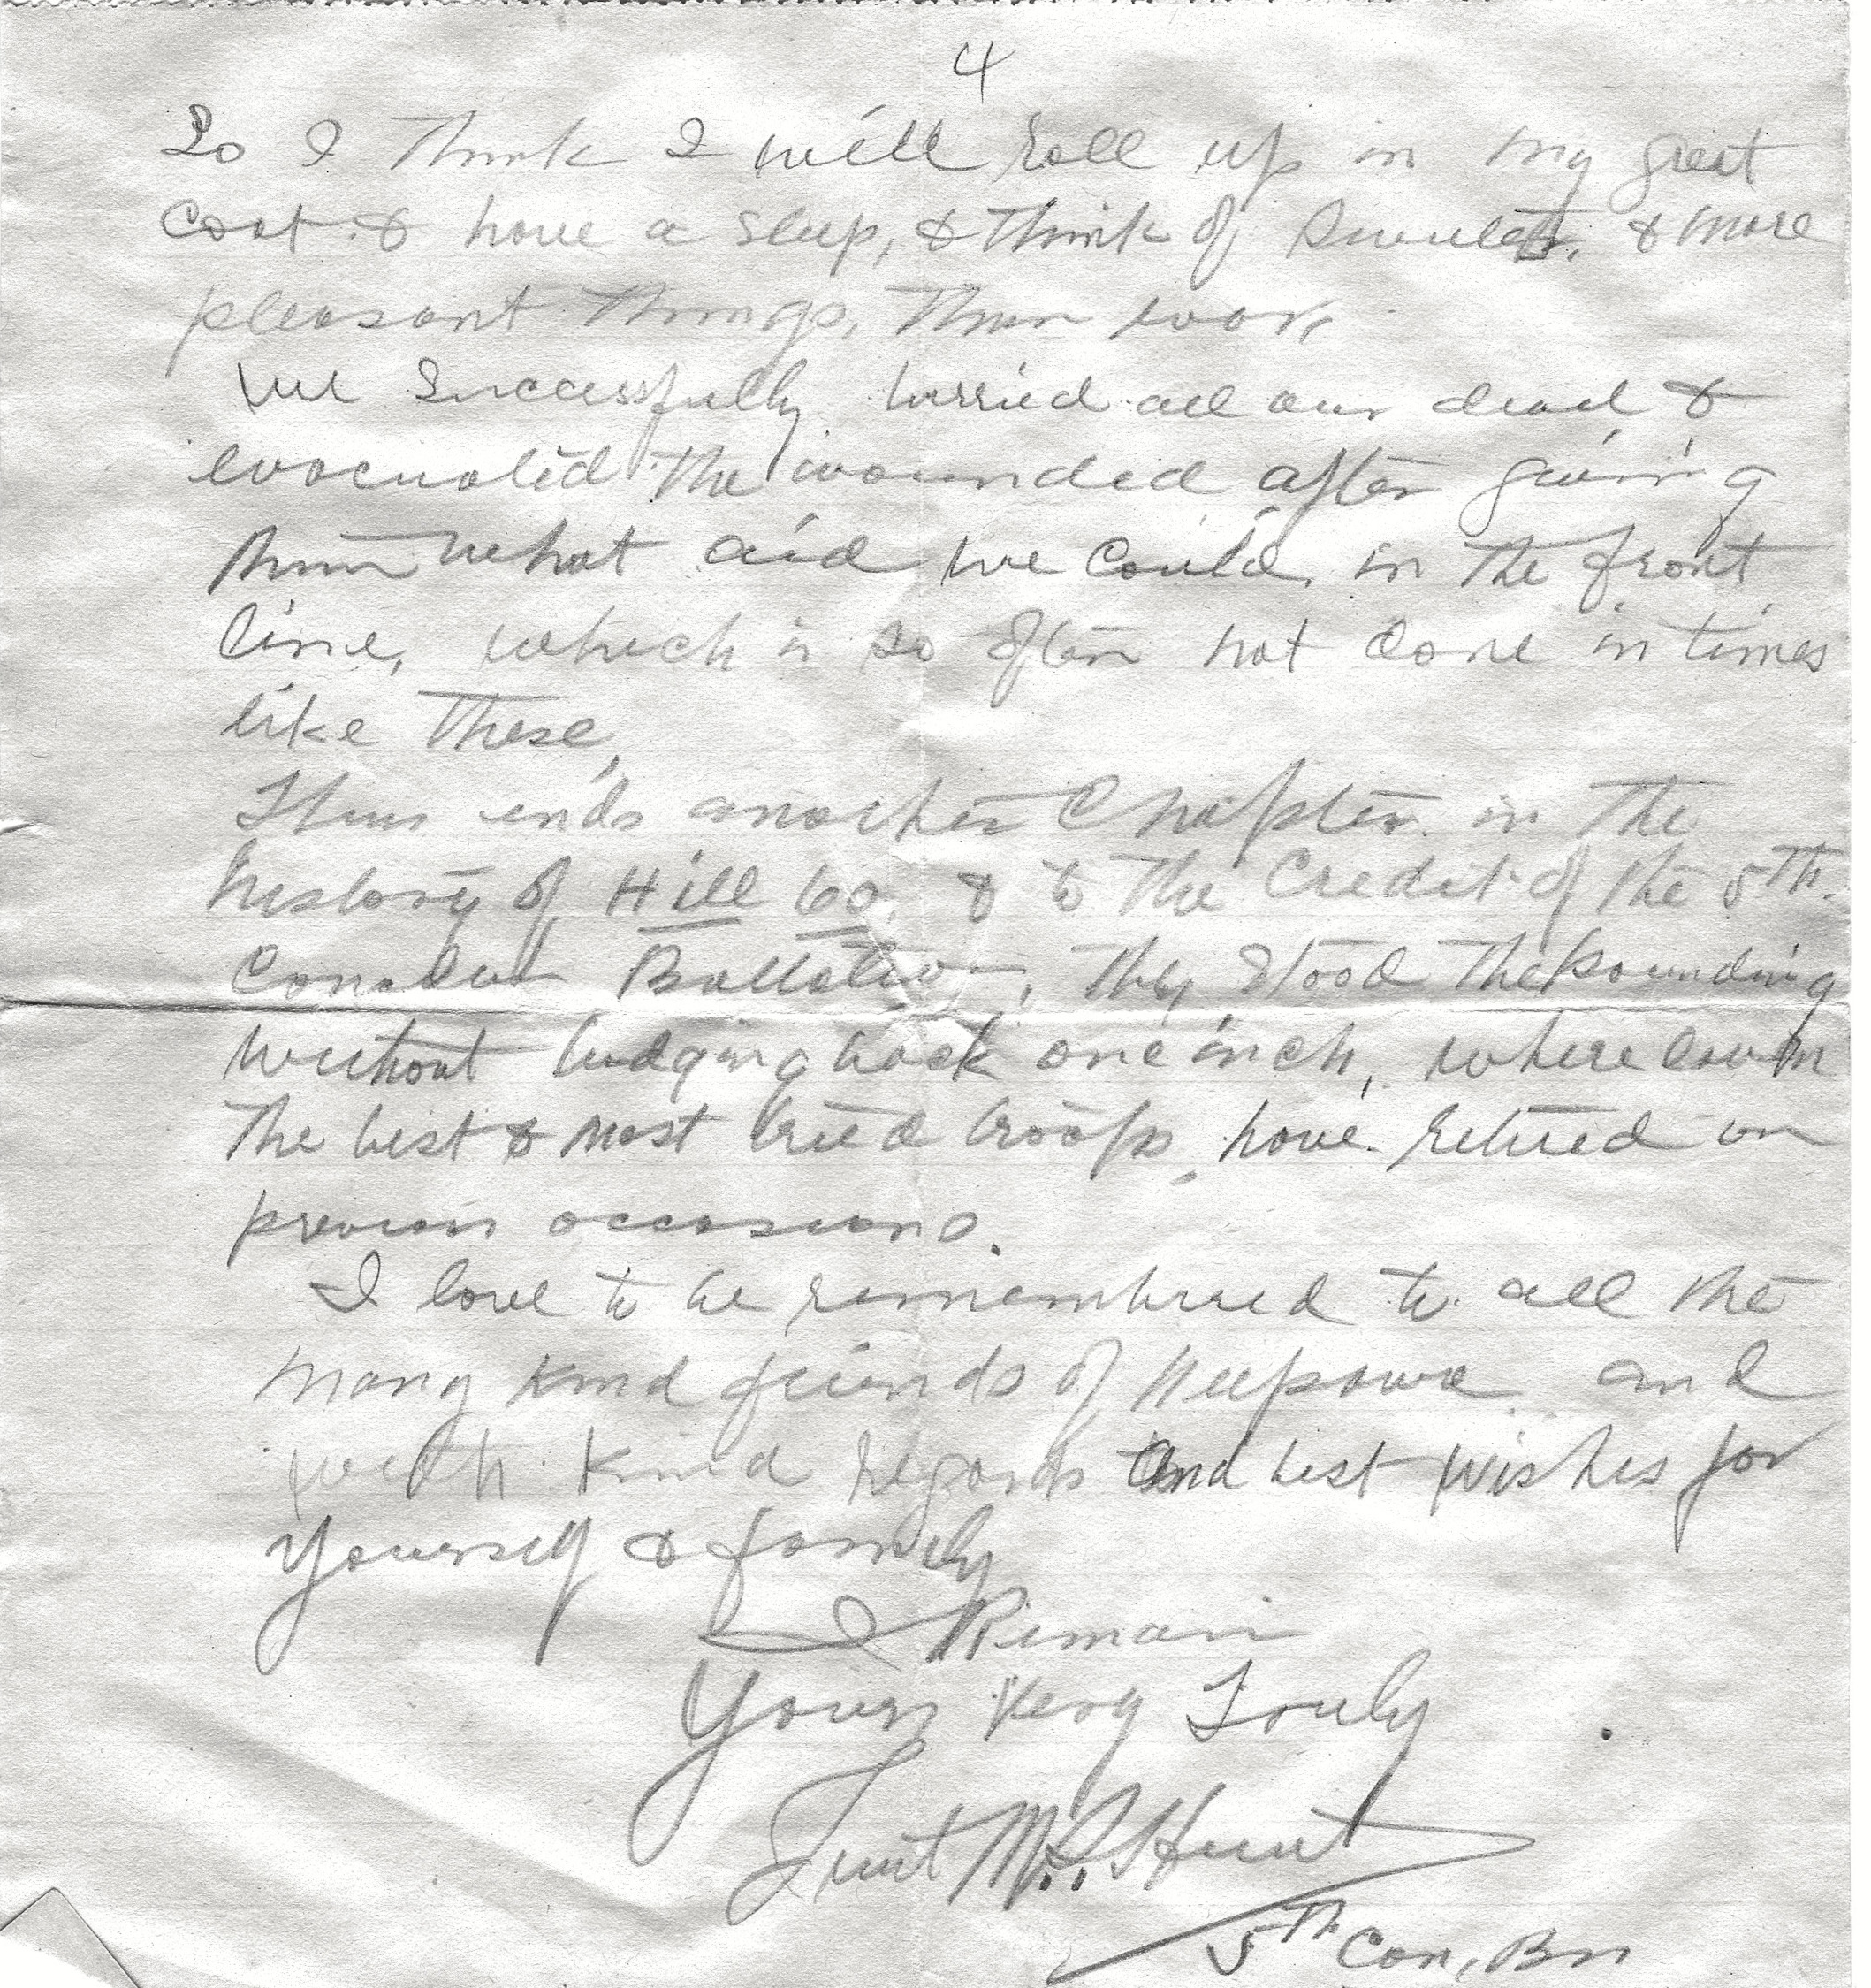 4
So I think I will roll up in my great
coat & have a sleep, & think of sweeter, & more
pleasant things, than war,
We successfully burried all our dead &
evacuated the wounded after giving
them what aid we could, in the front
line, which is so often not done in times
like these,
Thus ends another Chapter in the
history of Hill 60, & to the Credit of the 5th.
Canadian Battalion, they stood the pounding
without budging back one inch, where even
the best & most tried troops, have retired on
previous occasions.
I love to be remembered to all the
many kind friends of Neepawa and
with kind regards and best wishes for
yourself & family
I Remain
Yours Very Truly
Lieut M. Hunt
5th Can, Bn